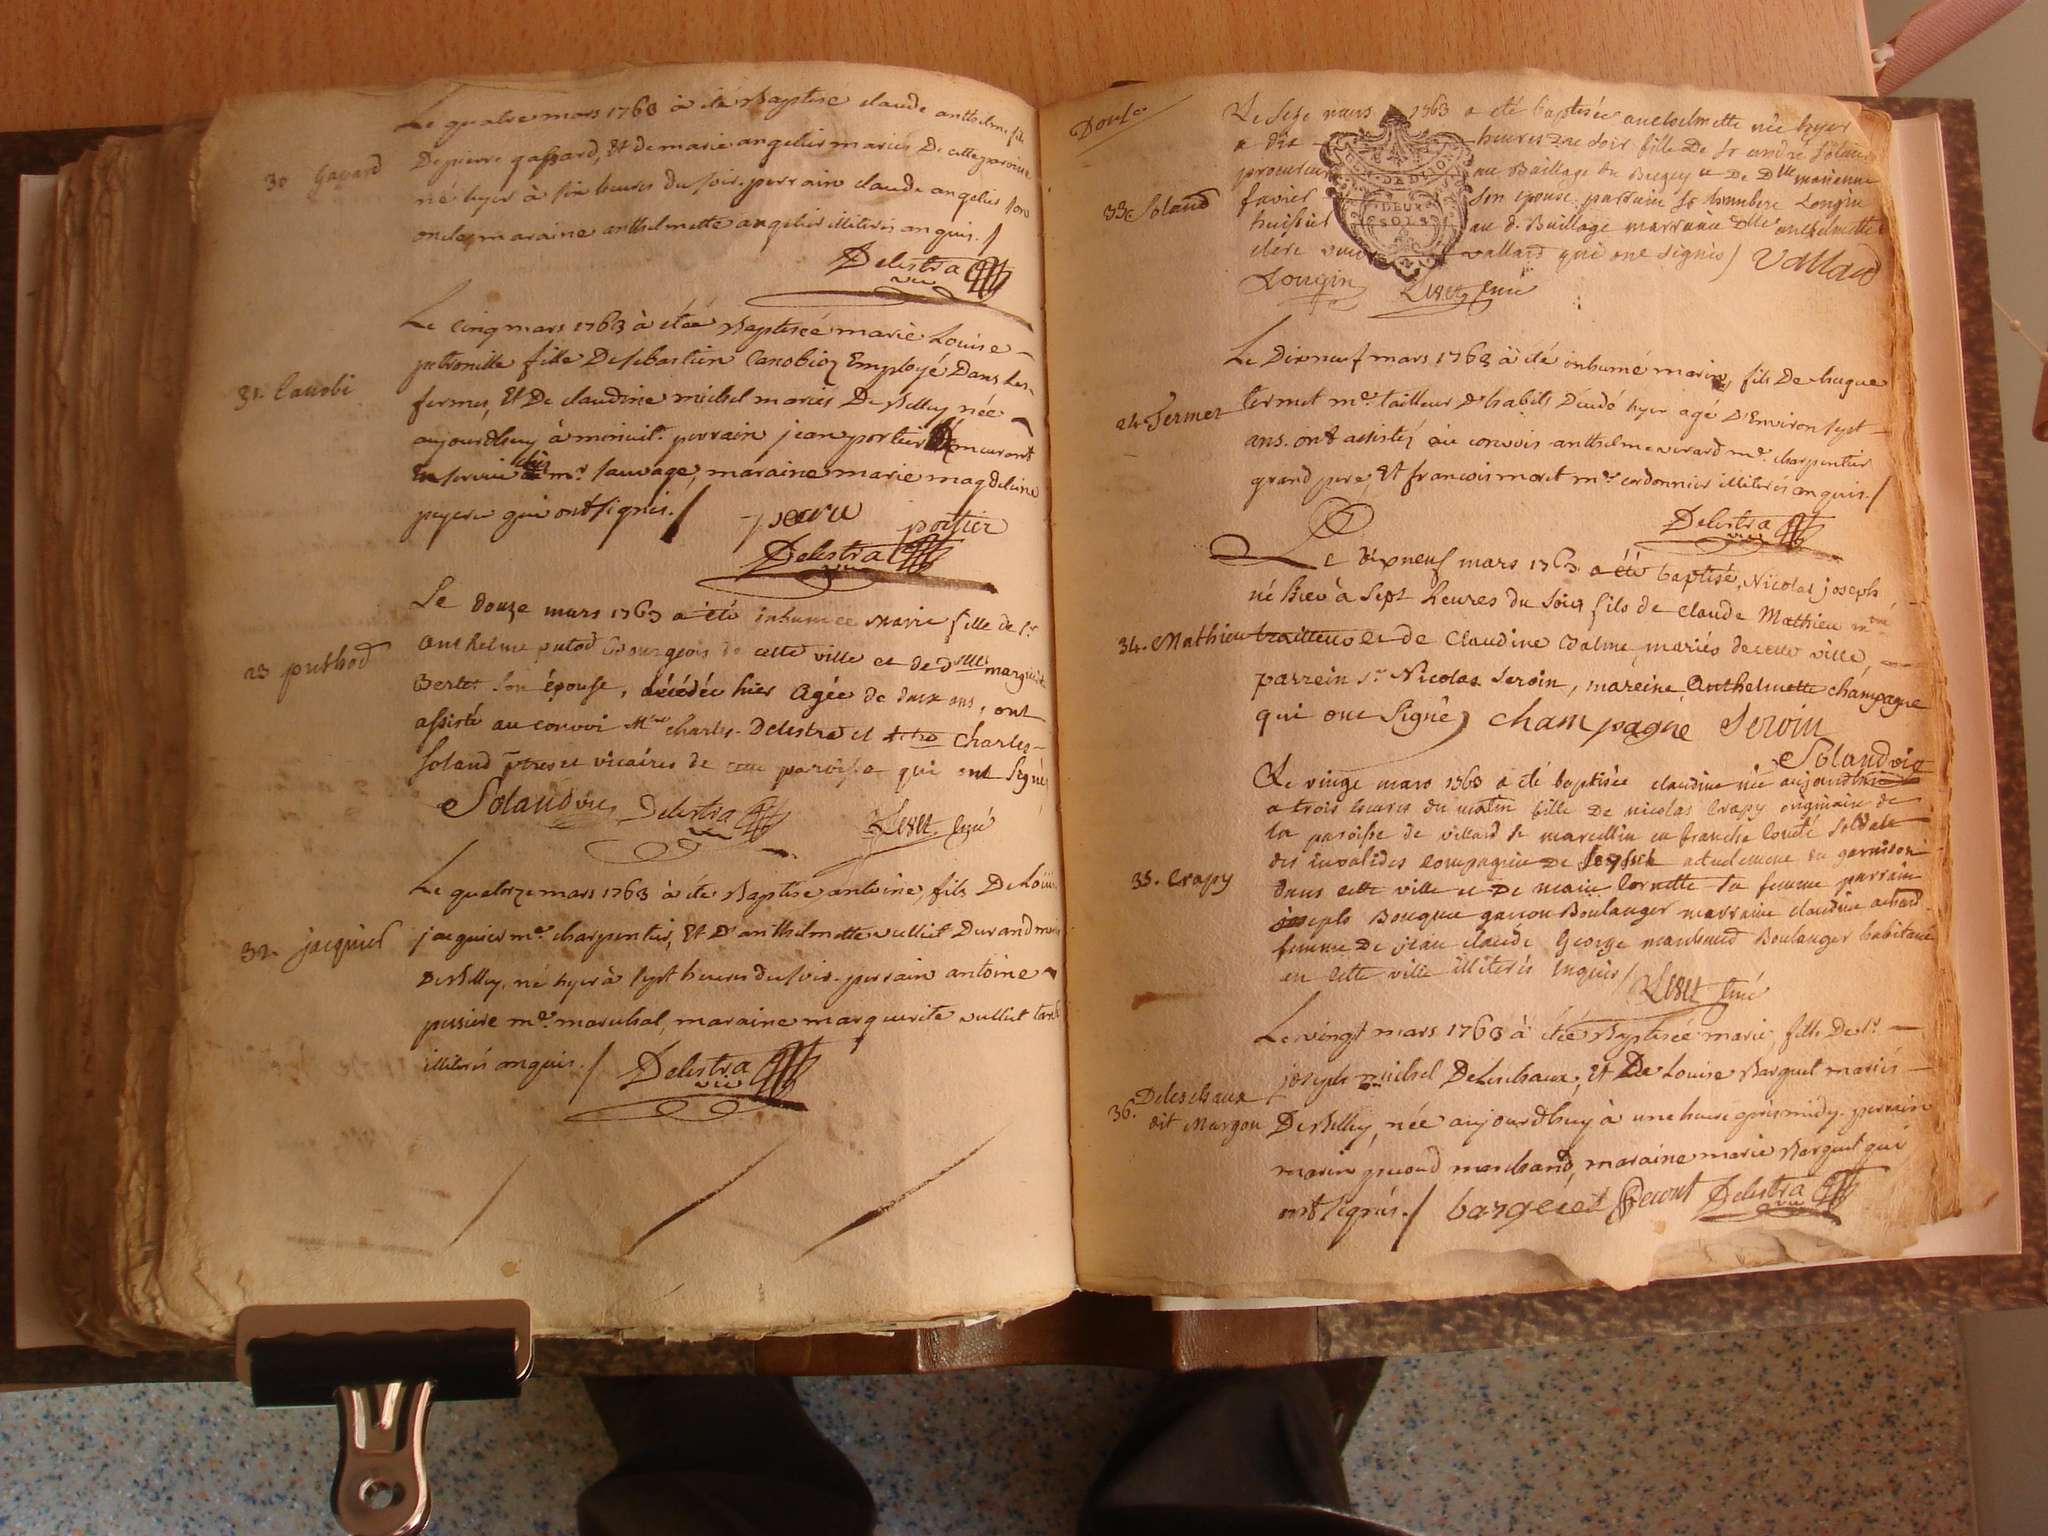 30 gavard
Le quatre mars 1763 à été Baptisé claude anthelme fils
De pierre gassard, Et de marie angelier mariés De cette paroisse
né hyer à six heures du soir. perrain claude angelier son
oncle, maraine anthelmette angelier illiterés enquis. /
Delestra vic
31. Canobi
Le cinq mars 1763 à étée Baptisée marie Louise
petronille fille De sebastien Canobioz Employé Dans Les
fermes, Et De claudine michel mariés De Belley née
aujourdhuy à minuit. perrain jean portier demeurant
En service chés mr. sauvage, maraine marie magdeleine
peyere qui ont signés. /
portier
Delestra vic
23 puthod
Le douze mars 1763 a été inhumée Marie fille de sr
Anthelme putod Bourgeois de cette ville et de dlle marguerite
Bertet son épouse, décédée hier agée de deux ans, ont
assisté au convoi Mres charles Delestra et charles
Soland ptres et vicaires de cette paroisse qui ont signé
Solandvic Delestra vic curé
32. jacquier
Le quatorze mars 1763 à été Baptisé antoine, fils De Loüis
jacquier me. charpentier, Et D'anthelmette vulliet Durand mariés
De Belley, né hyer à sept heures du soir. perrain antoine
me. marechal, maraine marguerite vulliet tante
illiterés enquis. / Delestra vic
Douse
33. Soland
Le seze mars 1763 a été baptisée anthelmette née hyer
a dix heures du soir fille De sr andré Soland
procureur au Baillage du Bugey et De Dlle marienne
favier son epouse parrain sr humbere Longin
huissier au d. Baillage marraine Dlle anthelmette
clere vallard qui ont signés / Vallard
DEUX
SOLS
Longin curé
24 Termet
Le Dixneuf mars 1763 à été inhumé marin, fils De hugue
termet me. tailleur D'habits Décédé hyer agé D'Environ sept
ans. ont assistés au convois anthelme verard me. charpentier
grand pere, Et francois moret me. cordonnier illiterés enquis. /
Delestra vic
Le dixneuf mars 1763 a été baptisé, Nicolas joseph
né hier à sept heures du soir fils de claude Mathieu mtre
34. Mathieu
trailleur et de Claudine Dalme, mariés de cette ville,
parrein sr Nicolas Seroin, mareine Anthelmette champagne
qui ont signé) champagne Seroin
Solandvic
35. Crapy
Le vingt mars 1763 a été baptisée claudine née aujourdhui
a trois heures du matin fille De nicolas Crapy originaire de
la paroisse de villard st marcellin en franche Comté soldat
des invalides Compagnie De actuelement en garnison
dans cette ville et De marie Cornette sa femme parrain
joseph Bouquu garcon Boulanger marraine claudine achard
femme De jean claude George Boulanger habitant
en cette ville illiterés Enquis / curé
36. Deleschaux
dit Margou
Le vingt mars 1763 à étée Baptisée marie, fille De sr
joseph michel Deleschaux, Et De Louise Barguet mariés
De Belley, née aujourdhuy à une heure apres midy. perrain
marin pecoud marchand, maraine marie Barguet qui
ont signés. / bargeiet Delestra vic